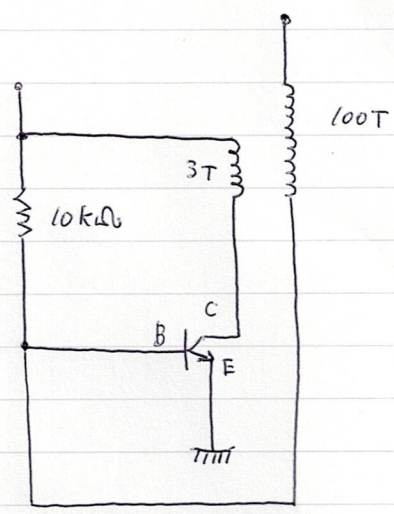 100T
3T
10kΩ
C
B
E